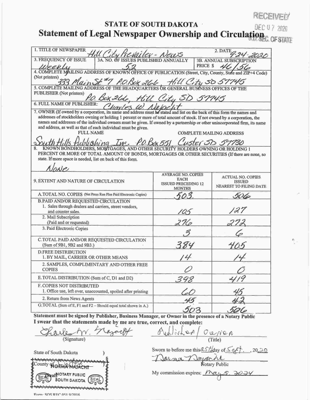 RECEIVED
DEC 07 2020
STATE OF SOUTH DAKOTA
Statement of Legal Newspaper Ownership and Circulation
1. TITLE OF NEWSPAPER
Hill City Prevailer-News
2. DATE
3. FREQUENCY OF ISSUE
Weekly
3A. NO. OF ISSUES PUBLISHED ANNUALLY
52
3B. ANNUAL SUBSCRIPTION PRICE $ 46/56
4. COMPLETE MAILING ADDRESS OF KNOWN OFFICE OF PUBLICATION (Street, City, County, State and ZIP+4 Code) (Not printers)
PO Box 266 Hill City SD 57745
5. COMPLETE MAILING ADDRESS OF THE HEADQUARTERS OF GENERAL BUSINESS OFFICES OF THE PUBLISHER (Not printer)
PO Box 266, Hill City SD 57745
6. FULL NAME OF PUBLISHER:
Charles W. Najacht
7. OWNER (If owned by a corporation, its name and address must be stated and
addresses of stockholders owning or holding 1 percent or more of total amount of stock. If not owned by a corporation, the
names and addresses of the individual owners must be given. If owned by a partnership or other unincorporated firm, its name
and address, as well as that of each individual must be given.
FULL NAME
COMPLETE MAILING ADDRESS
Southern Hills Publishing Inc. PO Box 551 Custer SD 57730
8. KNOWN BONDHOLDERS, MORTGAGES, AND OTHER SECURITY HOLDERS OWNING OR HOLDING 1
PERCENT OR MORE OF TOTAL AMOUNT OF BONDS, MORTGAGES OR OTHER SECURITIES (If there are none, so
state. If more space is needed, list on back of this form.
None
9. EXTENT AND NATURE OF CIRCULATION
AVERAGE NO. COPIES EACH ISSUES PRECEDING 12 MONTHS
ACTUAL NO. COPIES ISSUED NEAREST TO FILING DATE
A. TOTAL NO. COPIES 503 506
B. PAID AND/OR REQUESTED CIRCULATION
1. Sales through dealers and carriers, street vendors, and counter sales. 105 127
2. Mail Subscription (Paid and or requested) 276 272
3. Paid Electronic Copies 3 6
C. TOTAL PAID AND/OR REQUESTED CIRCULATION (Sum of 9B1, 9B2 and 9B3) 384 405
D. FREE DISTRIBUTION
1. BY MAIL, CARRIER OR OTHER MEANS 14 14
2. SAMPLES, COMPLIMENTARY AND OTHER FREE COPIES 0 0
E. TOTAL DISTRIBUTION (Sum of C, D1 and D2) 398 419
F. COPIES NOT DISTRIBUTED
1. Office use, left over, unaccounted, spoiled after printing 60 45
2. Return from News Agents 45 42
G. TOTAL (Sum of E, F1 and F2 - Should equal total shown in A.) 503 506
Statement must be signed by Publisher, Business Manager, or Owner in the presence of a Notary Public
I swear that the statements made by me are true, correct, and complete:
Charles W. Najacht
(Signature)
Publisher/Owner
(Title)
State of South Dakota
Sworn to before me this
Sept. 2020
County
NORMA NAJACHT
NOTARY PUBLIC
SOUTH DAKOTA
Norma Najacht
Notary Public
My commission expires: May 5, 2024